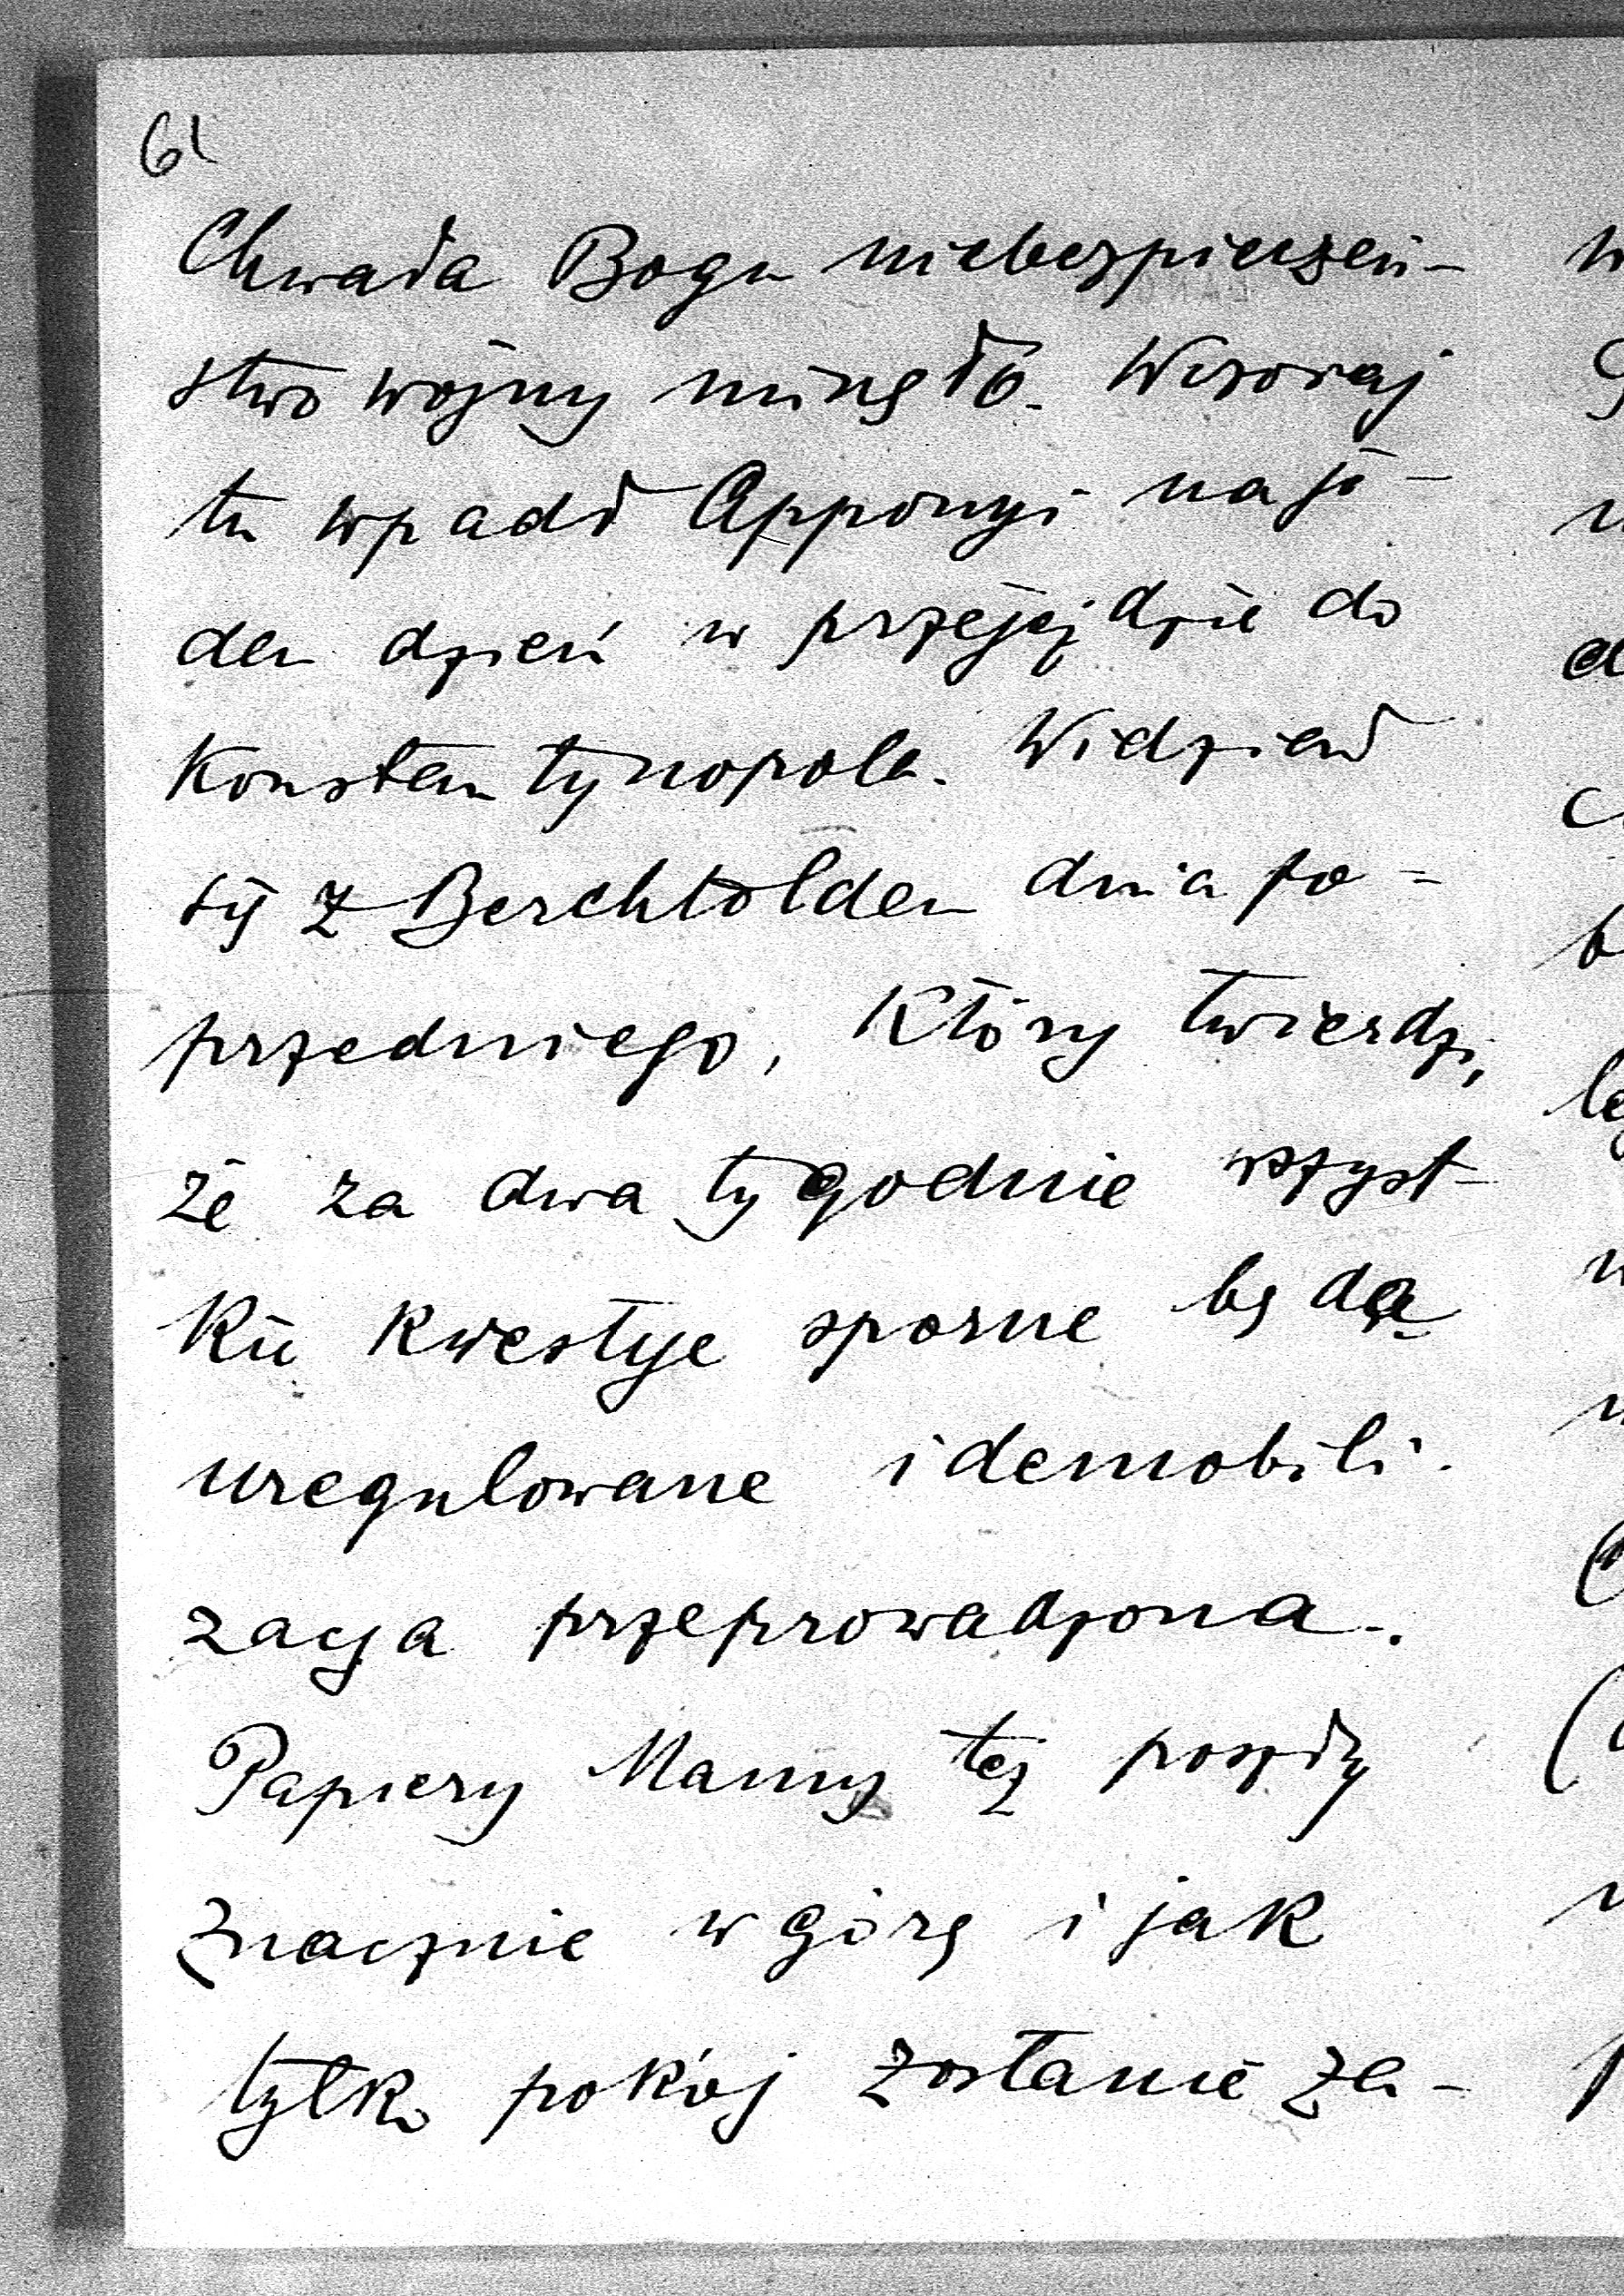 61
Chwała Bogu niebezpieczeń-
stwo wojny minęło. Wczoraj
tu wpadł Apponyi na je-
den dzień w przejeździe do
Konstantynopola. Widział
się z Berchtoldem dnia po-
przedniego, który twierdzi,
że za dwa tygodnie wszyst-
kie kwestye sporne będą
uregulowane i demobili-
zacja przeprowadzona.
Papiery Mamy też poszły
znacznie w górę i jak
tylko pokój zostanie za-